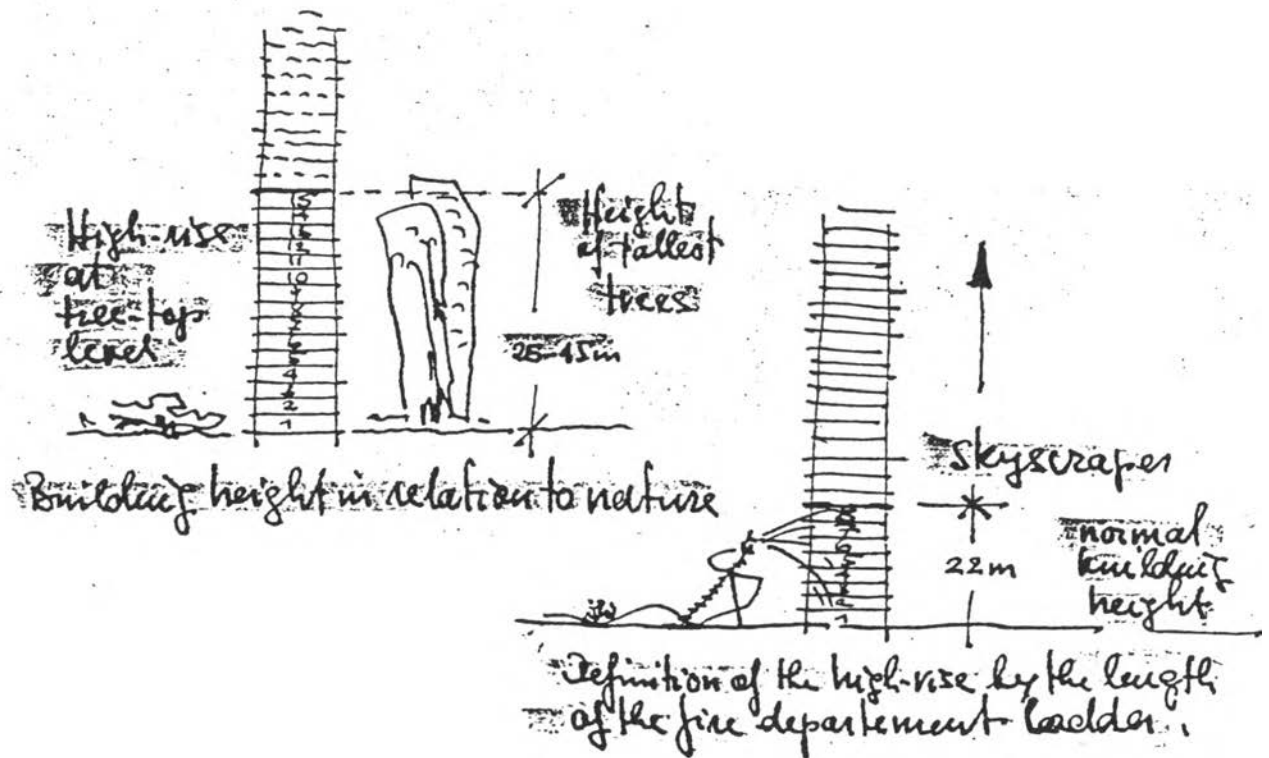 High-rise
at
tree-top
level
Height
of tallest
trees
25-45m
Building height in relation to nature
Skyscraper
22m
normal
building
height
Definition of the high-rise by the length
of the fire departement ladder.